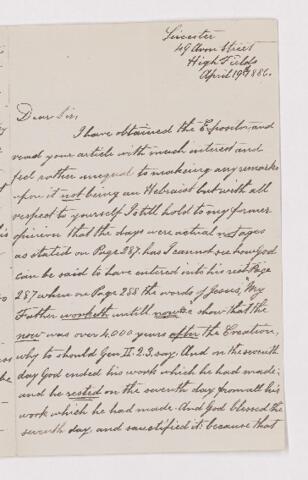 Leicester
49 Avon Street
High Fields
April 19th 1886.
Dear Sir,
I have obtained the Expositor, and
read your article with much interest and
feel rather unequal to makeing any remarks
upon it not being an Hebraist but with all
respect to yourself I still hold to my former
opinion that the days were actual not ages
as stated on Page 287. has I cannot see how God
can be said to have entered into his rest Page
287 when on Page 288 the words of Jesus, "My
Father worketh until now" show that the
now was over 4,000 years after the Creation,
why to should Gen II. 2.3. say. And on the seventh
day God ended his work which he had made;
and he rested on the seventh day from all his
work which he had made. And God blessed the
seventh day, and sanctified it: because that